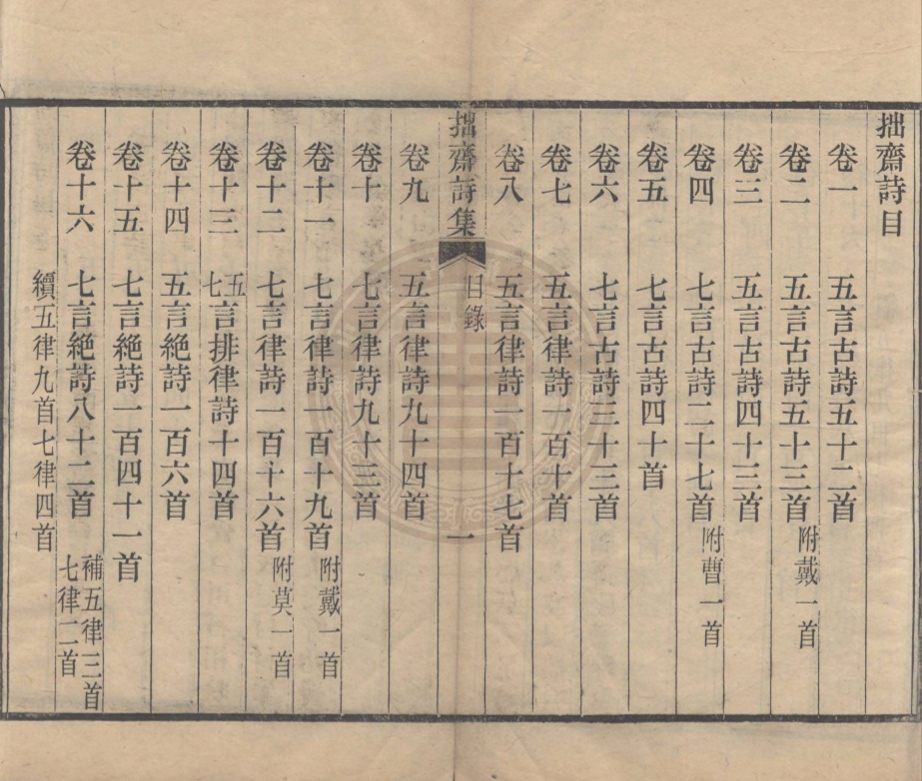 拙齋詩目
卷一 五言古詩五十二首
卷二 五言古詩五十三首 附戴一首
卷三 五言古詩四十三首
卷四 七言古詩二十七首 附曹一首
卷五 七言古詩四十首
卷六 七言古詩三十三首
卷七 五言律詩一百十首
卷八 五言律詩一百十七首
拙齋詩集 目錄 一
卷九 五言律詩九十四首
卷十 七言律詩九十三首
卷十一 七言律詩一百十九首 附戴一首
卷十二 七言律詩一百十六首 附莫一首
卷十三 五七言排律詩十四首
卷十四 五言絕詩一百六首
卷十五 七言絕詩一百四十一首
卷十六 七言絕詩八十二首 補五律三首七律二首
續五律九首七律四首